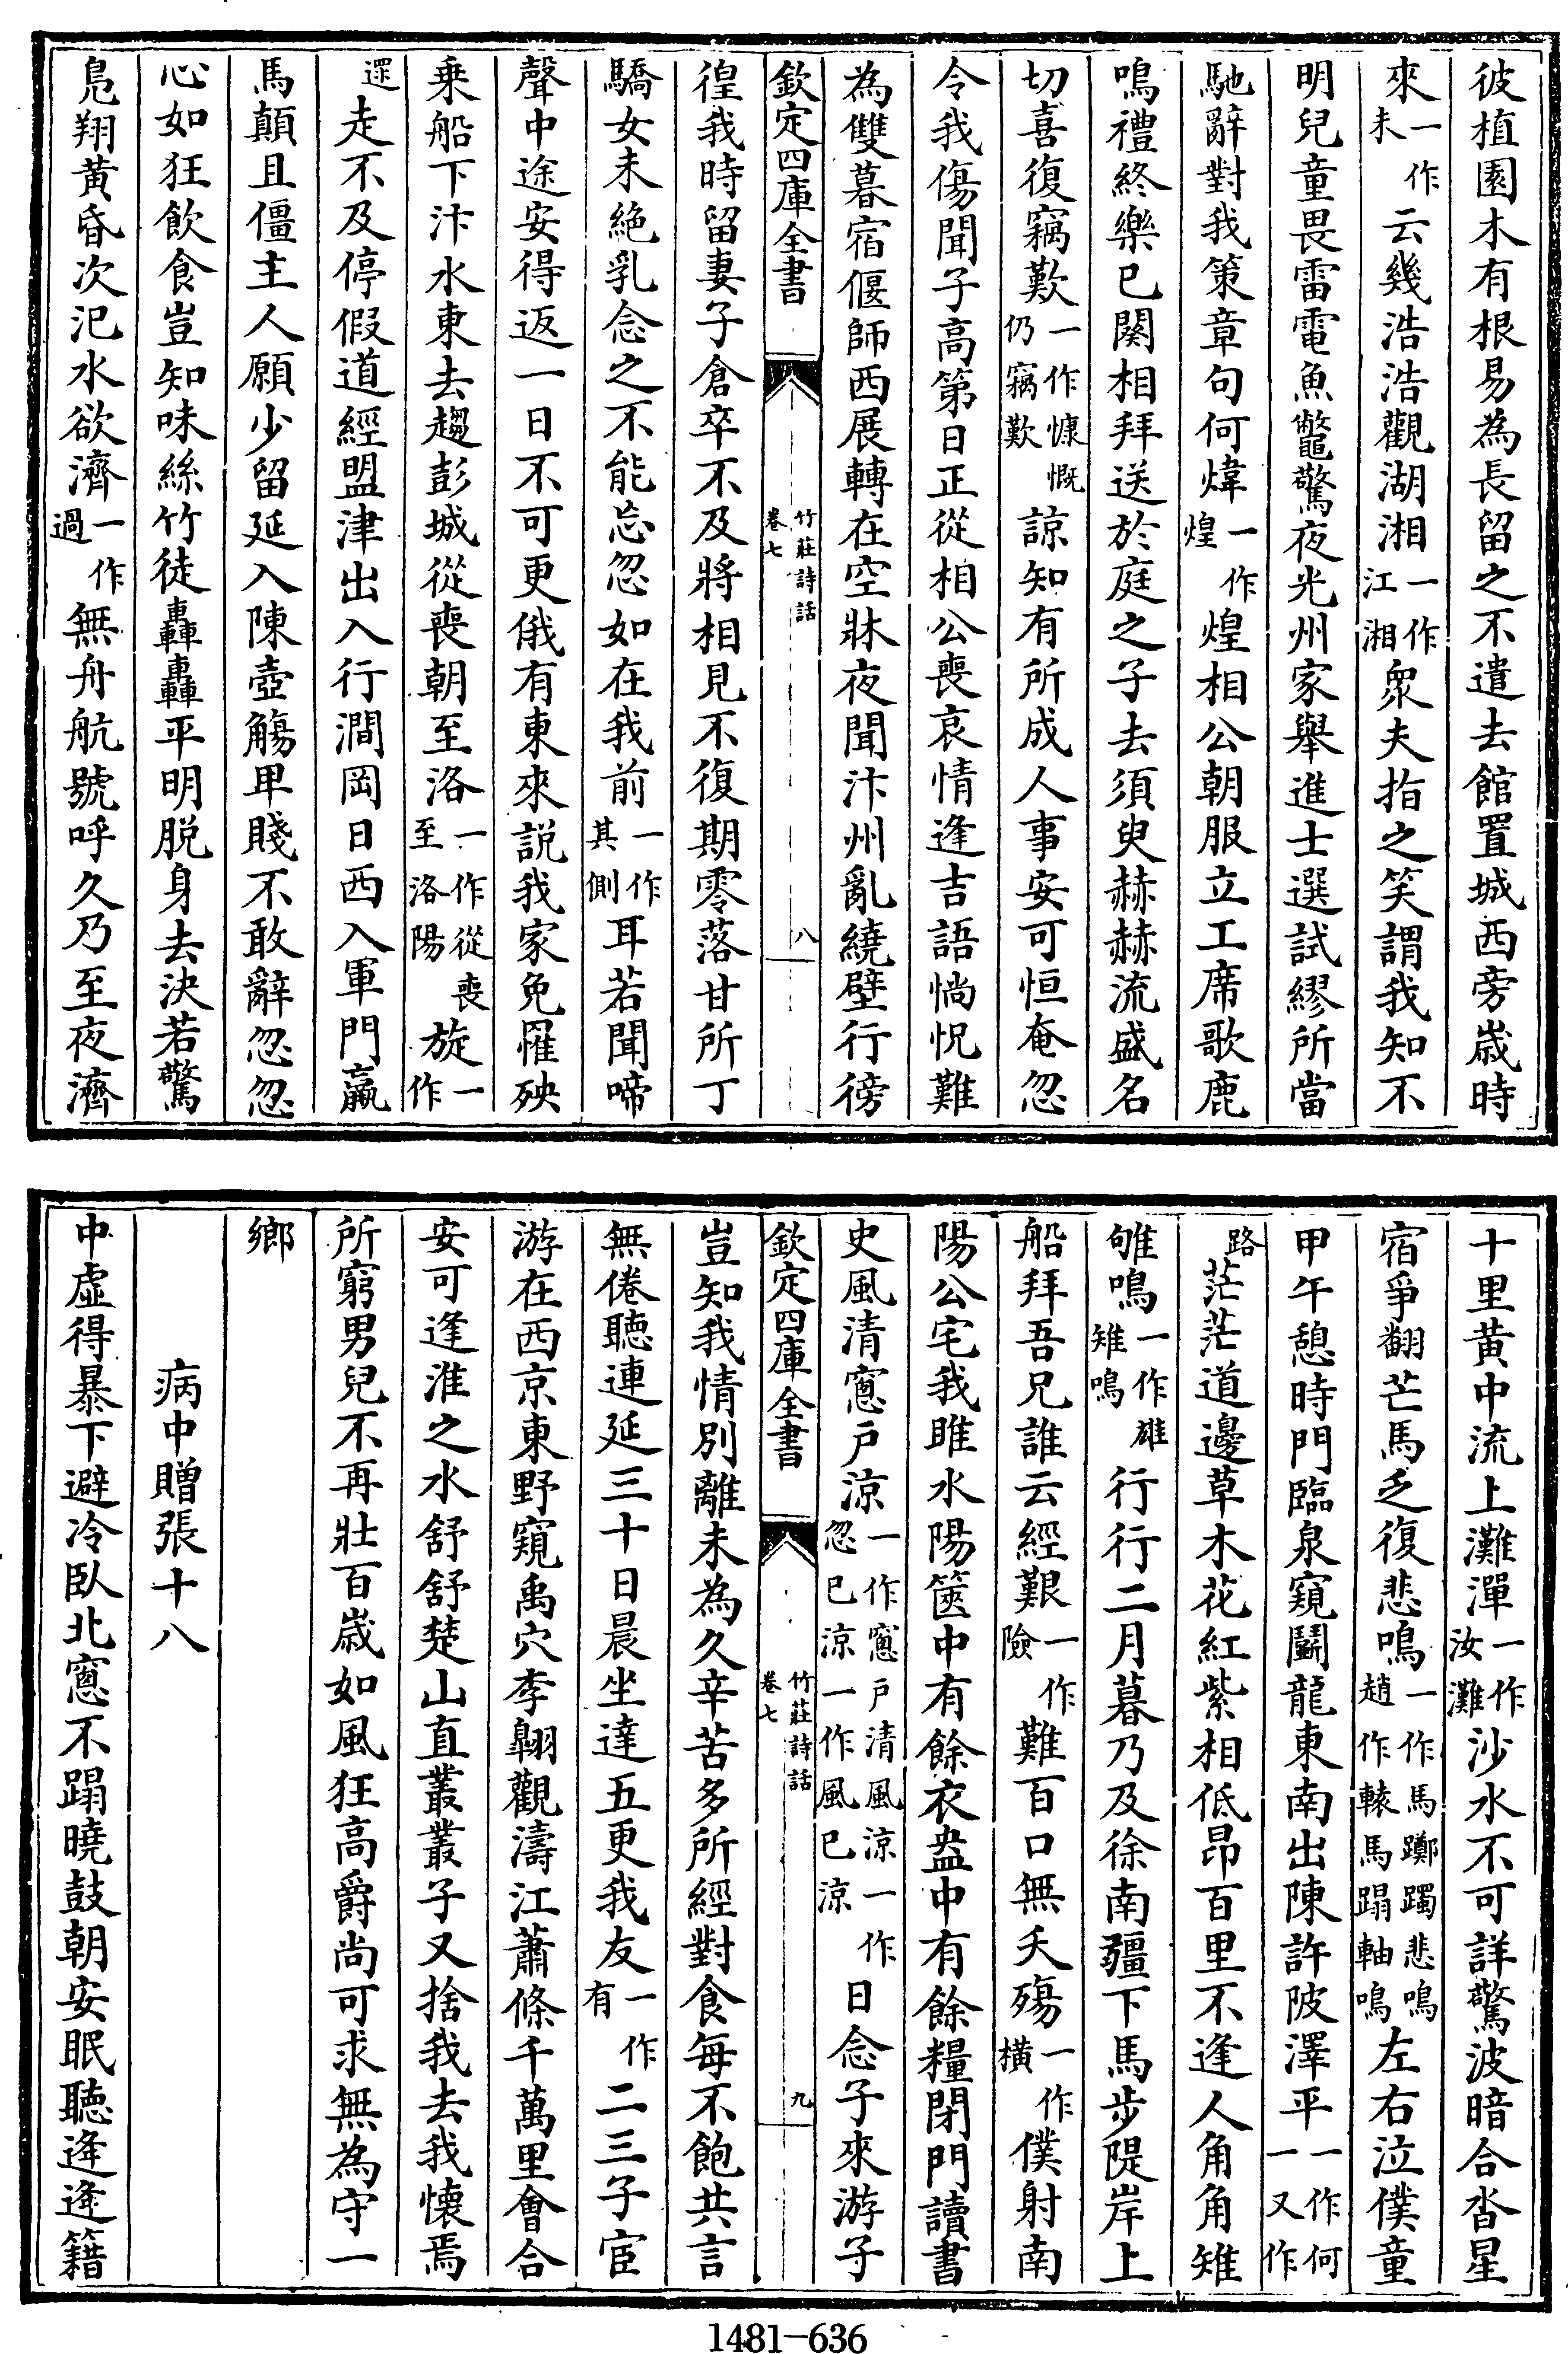 彼植園木有根易為長留之不遣去館置城西旁嵗時
來一作未云幾浩浩觀湖湘一作江湘衆夫指之笑謂我知不
明兒童畏雷電魚鼈驚夜光州家舉進士選試繆所當
馳辭對我策章句何煒一作煌煌相公朝服立工席歌鹿
鳴禮終樂已闋相拜送於庭之子去須臾赫赫流盛名
切喜復竊歎一作慷慨仍竊歎諒知有所成人事安可恒奄忽
令我傷聞子高第日正從相公喪哀情逢吉語惝怳難
為雙暮宿偃師西展轉在空牀夜聞汴州亂繞壁行徬
欽定四庫全書
竹莊詩話
卷七
八
徨我時留妻子倉卒不及將相見不復期零落甘所丁
驕女未絶乳念之不能忘忽如在我前一作其側耳若聞啼
聲中途安得返一日不可更俄有東來説我家免罹殃
乘船下汴水東去趨彭城從喪朝至洛一作從喪至洛陽旋一作
還走不及停假道經盟津出入行澗岡日西入軍門羸
馬顛且僵主人願少留延入陳壺觴卑賤不敢辭忽忽
心如狂飲食豈知味絲竹徒轟轟平明脱身去決若驚
鳧翔黄昏次汜水欲濟一作過無舟航號呼久乃至夜濟
十里黄中流上灘潬一作汝灘沙水不可詳驚波暗合沓星
宿爭翻芒馬乏復悲鳴一作馬躑躅悲鳴趙作轅馬蹋軸鳴左右泣僕童
甲午憩時門臨泉窺鬭龍東南出陳許陂澤平一作何一又作
路茫茫道邊草木花紅紫相低昂百里不逢人角角雉
雊鳴一作雄雉鳴行行二月暮乃及徐南疆下馬步隄岸上
船拜吾兄誰云經艱一作險難百口無夭殤一作橫僕射南
陽公宅我睢水陽篋中有餘衣盎中有餘糧閉門讀書
史風清窻戶涼一作窻戶清風涼一作忽已涼一作風已涼日念子來游子
欽定四庫全書
竹莊詩話
卷七
九
豈知我情別離未為久辛苦多所經對食每不飽共言
無倦聽連延三十日晨坐達五更我友一作有二三子宦
游在西京東野窺禹穴李翱觀濤江蕭條千萬里會合
安可逢淮之水舒舒楚山直叢叢子又捨我去我懐焉
所窮男兒不再壯百嵗如風狂高爵尚可求無為守一
鄉
病中贈張十八
中虛得暴下避冷臥北窻不蹋曉鼓朝安眠聽逄逄籍
1481-636